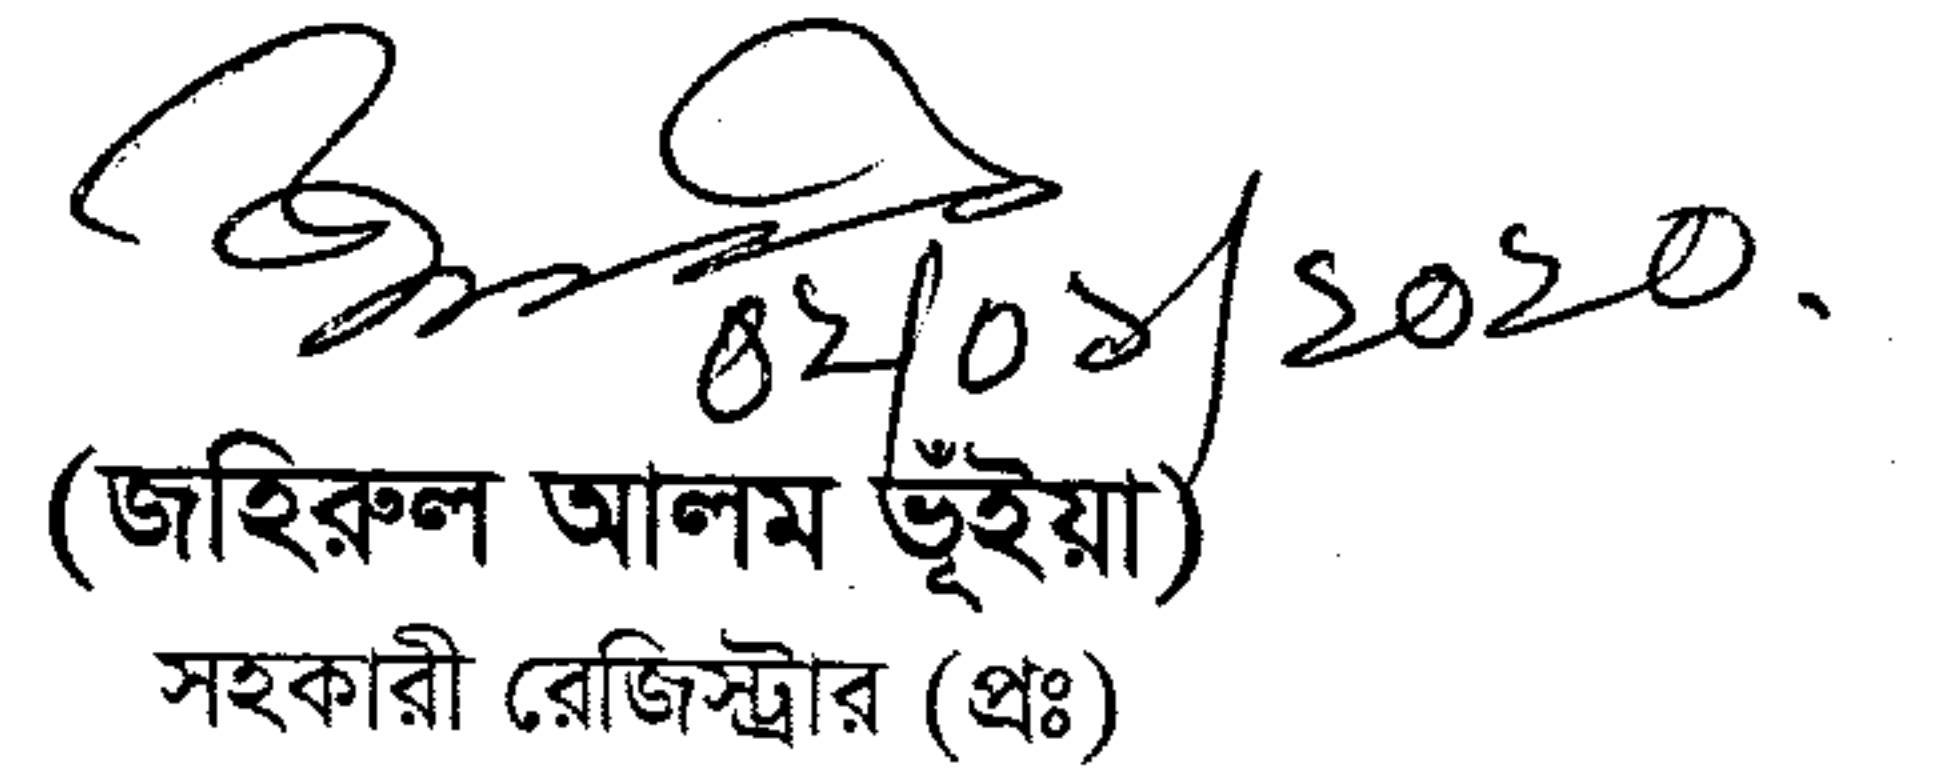 ৪২/০৯/২০২০.
(জহিরুল আলম ভূঁইয়া)
সহকারী রেজিস্ট্রার (প্রঃ)